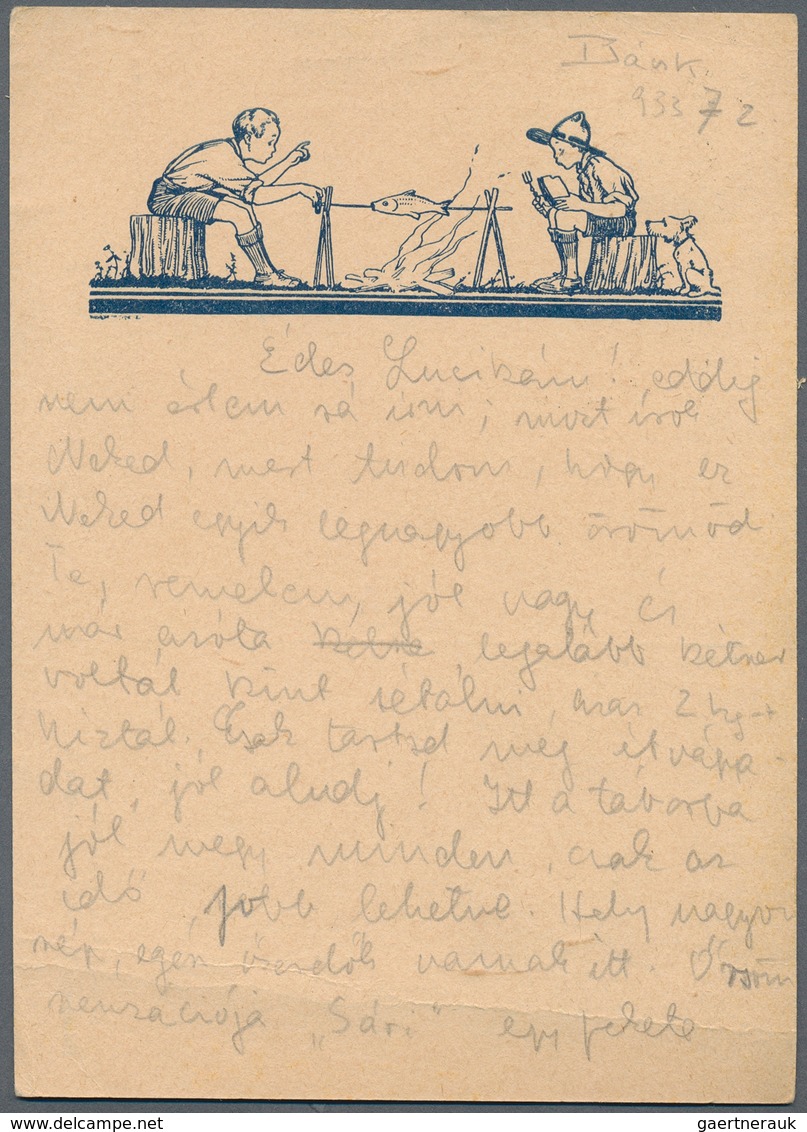 Bánk.
933 7 2
Édes Lucikám! eddig
nem értem rá írni, most írok
Neked, mert tudom, hogy ez
Neked egyik legnagyobb örömöd.
Te, remélem, jól vagy és
már azóta kétsz legalább kétszer
voltál kint sétálni, már 2 kg-t
híztál. Csak tartsd meg étvágya-
dat, jól aludj! Itt a táborba
jól megy minden, csak az
idő jobb lehetne. Hely nagyon
szép, egész erdők vannak itt. Őrsöm
szenzációja „Sári" egy fekete
gaertnerauk